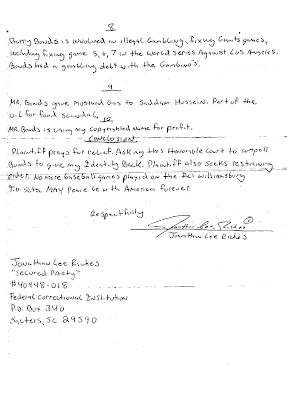 8
Barry Bonds is involved in illegal Gambling, fixing Giants games,
including fixing game 5, 6, 7 in the World Series Against Los Angeles.
Bonds had a gambling debt with the Gambino's.
9
MR. Bonds gave mustard Gas to Saddam Hussein. Part of the
oil for food scandal.
10
MR. Bonds is using my copyrighted name for profit.
Conclusion
Plaintiff prays for relief. Asking this Honorable court to compell
Bonds to give my Identity Back. Plaintiff also seeks restraining
order. No more baseball games played on the FCI Williamsburg
TV sets. May Peace be with America forever.
Respectfully
Jonathan Lee Riches ©
Jonathan Lee Riches
Jonathan Lee Riches
"Secured PARty"
#40948-018
Federal Correctional Institution
P.O. Box 340
Salters, SC 29590